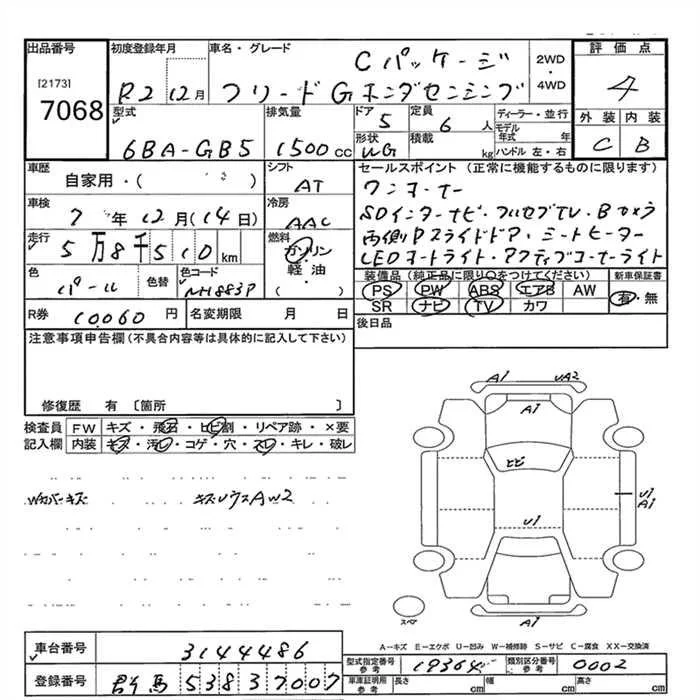 出品番号
[2173]
7068
初度登録年月
R2 12月
車名・グレード
Cパッケージ
フリード G ホンダセンシング
2WD・4WD
評価点
4
外装 内装
C B
型式
6BA-GB5
排気量
1500cc
ドア
5
形状
WG
定員
6人
積載
kg
ディーラー・並行
モデル年式 年
ハンドル 左・右
車歴
自家用・( )
シフト
AT
車検
7年12月(14日)
冷房
AAC
走行
5万8千510km
燃料
ガソリン・軽・油
( )
色
パール
色替
色コード
NH883P
R券 10060円
名変期限 月 日
セールスポイント (正常に機能するものに限ります)
ワンオーナー
SDインターナビ・フルセグTV・Bカメラ
両側Pスライドドア・シートヒーター
LEDオートライト・アクティブコーナーライト
装備品 (純正品に限り○をつけてください)
PS PW ABS エアB AW
SR ナビ TV カワ
新車保証書
有・無
後日品
注意事項申告欄 (不具合内容等は具体的に記入して下さい)
修復歴 有 〔箇所 〕
検査員記入欄
FW キズ・飛石・ヒビ割・リペア跡・×要
内装 キズ・汚レ・コゲ・穴・スレ・キレ・破レ
Wカバーキズ キズUウスAW2
A1 UA2
A1
ヒビ
U1
U1
A1
A1
スペア
A-キズ E-エクボ U-凹み W-補修跡 S-サビ C-腐食 XX-交換済
車台番号 3144486
登録番号 群馬 538 37007
型式指定番号 参考 19364
類別区分番号 参考 0002
車庫証明用 参考 長さ cm 幅 cm 高さ cm